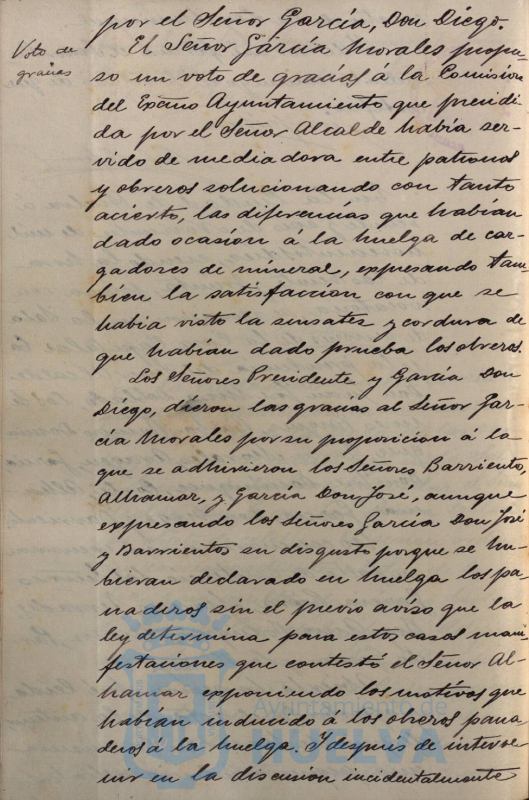 por el Señor García, Don Diego.
Voto de
gracias
El Señor García Morales propu-
so un voto de gracias á la Comision
del Excmo Ayuntamiento que presidi-
da por el Señor Alcalde había ser-
vido de mediadora entre patronos
y obreros solucionando con tanto
acierto, las diferencias que habían
dado ocasion á la huelga de car-
gadores de mineral, expresando tam-
bien la satisfaccion con que se
habia visto la sensatez y cordura de
que habían dado prueba los obreros.
Los Señores Presidente y García Don
Diego, dieron las gracias al Señor Gar-
cía Morales por su proposicion á la
que se adhirieron los Señores Barriento,
Alhamar, y García Don José, aunque
expresando los Señores García Don José
y Barrientos su disgusto porque se hu-
bieran declarado en huelga los pa-
naderos sin el previo aviso que la
ley determina para estos casos mani-
festaciones que contestó el Señor Al-
hamar exponiendo los motivos que
habían inducido á los obreros pana-
deros á la huelga. Y después de interve-
nir en la discusion incidentalmente
Ayuntamiento de
HUELVA